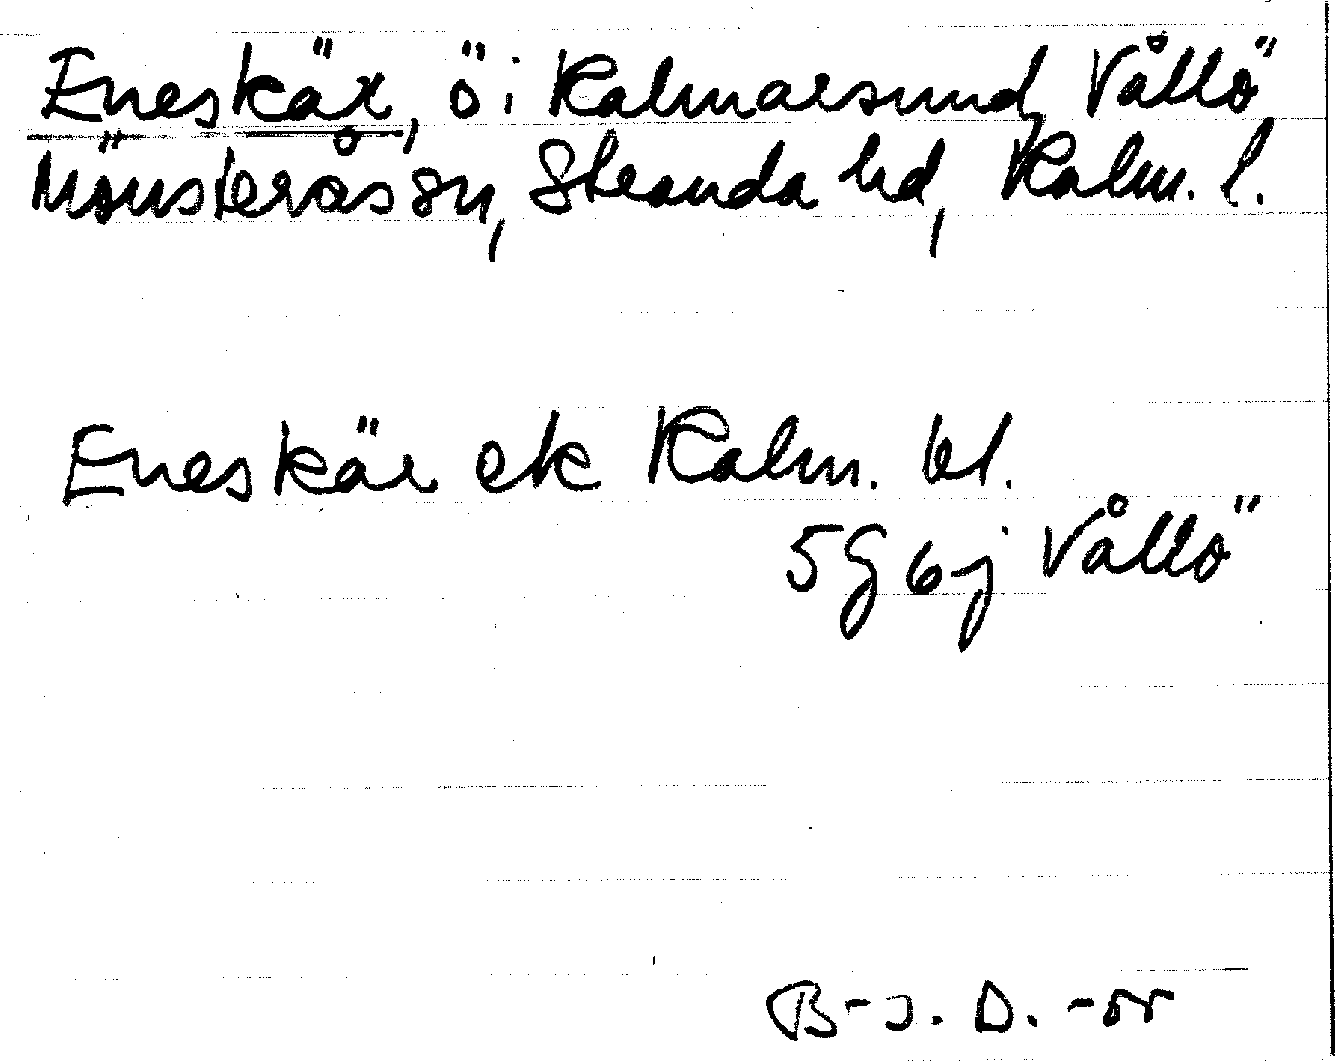 Eneskär, ö i Kalmarsund, Vållö
Mönsterås sn, Stranda hd, Kalm. l.
Eneskär ek Kalm. bl.
5G6j Vållö
B-J. D. -55